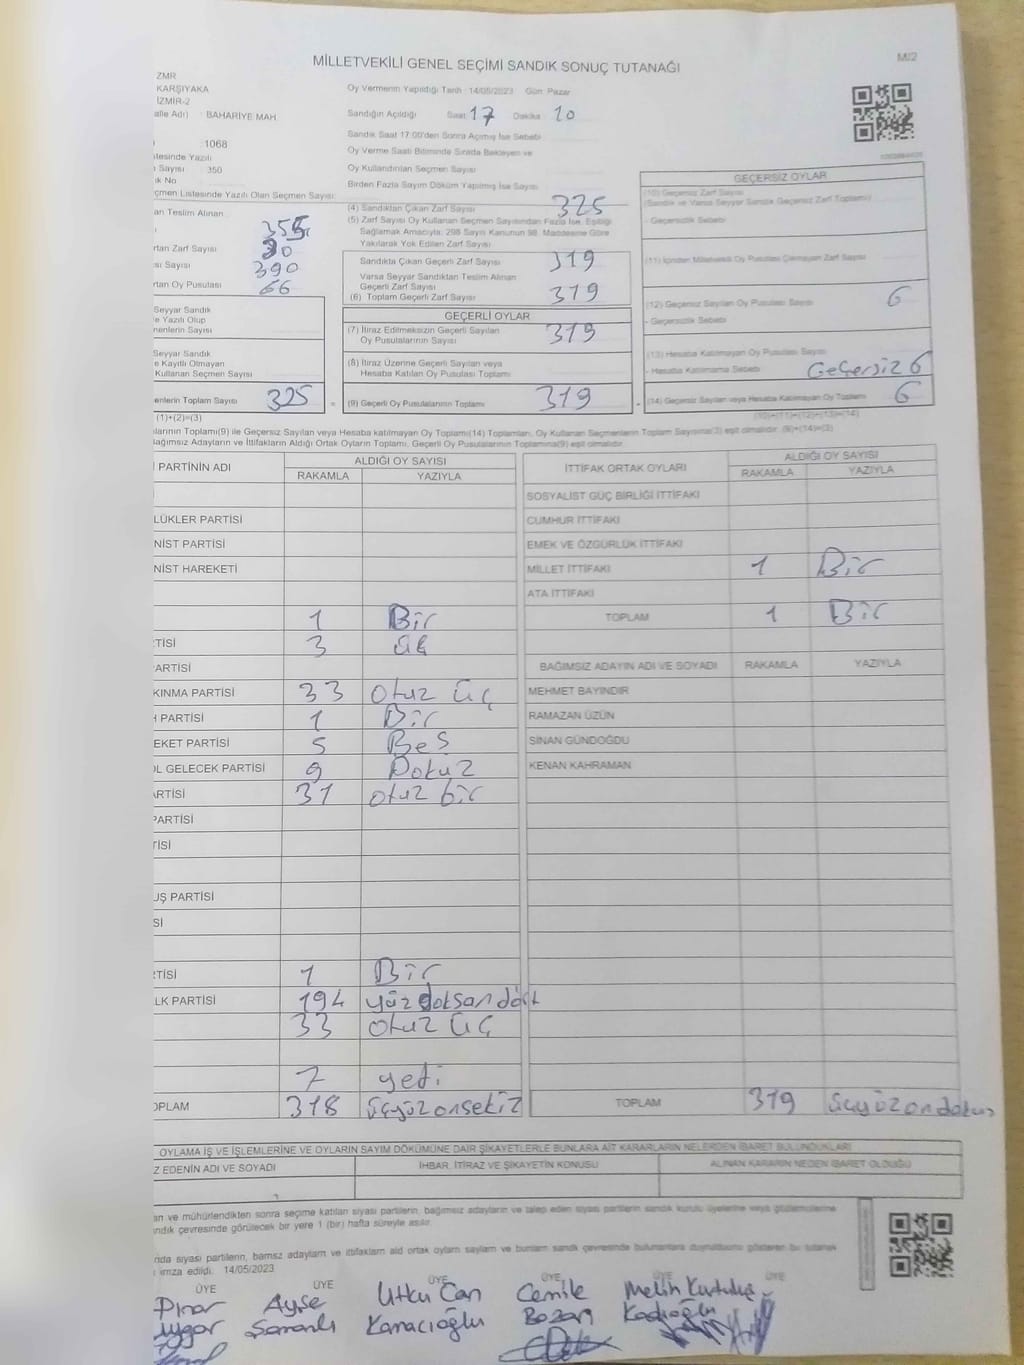 MİLLETVEKİLİ GENEL SEÇİMİ SANDIK SONUÇ TUTANAĞI
M/2
ZMR
KARŞIYAKA
İZMİR-2
alle Adı) : BAHARİYE MAH.
: 1068
tesinde Yazılı
Sayısı : 350
ık No
çmen Listesinde Yazılı Olan Seçmen Sayısı
an Teslim Alınan
355
rtan Zarf Sayısı 30
sı Sayısı 390
rtan Oy Pusulası 66
Seyyar Sandık
e Yazılı Olup
menlerin Sayısı
Seyyar Sandık
e Kayıtlı Olmayan
Kullanan Seçmen Sayısı
enlerin Toplam Sayısı 325
(1)+(2)=(3)
Oy Vermenin Yapıldığı Tarih : 14/05/2023 Gün : Pazar
Sandığın Açıldığı Saat 17 Dakika 10
Sandık Saat 17:00'den Sonra Açılmış İse Sebebi
Oy Verme Saati Bitiminde Sırada Bekleyen ve
Oy Kullandırılan Seçmen Sayısı
Birden Fazla Sayım Döküm Yapılmış İse Sayısı
(4) Sandıktan Çıkan Zarf Sayısı 325
(5) Zarf Sayısı Oy Kullanan Seçmen Sayısından Fazla İse, Eşitliği
Sağlamak Amacıyla, 298 Sayılı Kanunun 98. Maddesine Göre
Yakılarak Yok Edilen Zarf Sayısı
Sandıkta Çıkan Geçerli Zarf Sayısı 319
Varsa Seyyar Sandıktan Teslim Alınan
Geçerli Zarf Sayısı
(6) Toplam Geçerli Zarf Sayısı 319
GEÇERLİ OYLAR
(7) İtiraz Edilmeksizin Geçerli Sayılan
Oy Pusulalarının Sayısı 319
(8) İtiraz Üzerine Geçerli Sayılan veya
Hesaba Katılan Oy Pusulası Toplamı
(9) Geçerli Oy Pusulalarının Toplamı 319
GEÇERSİZ OYLAR
(10) Geçersiz Zarf Sayısı
(Sandık ve Varsa Seyyar Sandık Geçersiz Zarf Toplamı)
- Geçersizlik Sebebi
(11) İçinden Milletvekili Oy Pusulası Çıkmayan Zarf Sayısı
(12) Geçersiz Sayılan Oy Pusulası Sayısı 6
- Geçersizlik Sebebi
(13) Hesaba Katılmayan Oy Pusulası Sayısı
- Hesaba Katılmama Sebebi Geçersiz 6
(14) Geçersiz Sayılan veya Hesaba Katılmayan Oy Toplamı 6
(10)+(11)+(12)+(13)=(14)
larının Toplamı(9) ile Geçersiz Sayılan veya Hesaba katılmayan Oy Toplamı(14) Toplamları, Oy Kullanan Seçmenlerin Toplam Sayısına(3) eşit olmalıdır. (9)+(14)=(3)
Bağımsız Adayların ve İttifakların Aldığı Ortak Oyların Toplamı, Geçerli Oy Pusulalarının Toplamına(9) eşit olmalıdır.
İ PARTİNİN ADI ALDIĞI OY SAYISI
RAKAMLA YAZIYLA
LÜKLER PARTİSİ
NİST PARTİSİ
NİST HAREKETİ
1 Bir
TİSİ 3 üç
ARTİSİ
KINMA PARTİSİ 33 otuz üç
H PARTİSİ 1 Bir
EKET PARTİSİ 5 Beş
OL GELECEK PARTİSİ 9 Dokuz
ARTİSİ 31 otuz bir
PARTİSİ
TİSİ
UŞ PARTİSİ
Sİ
TİSİ 1 Bir
LK PARTİSİ 194 yüz doksan dört
33 otuz üç
7 yedi
OPLAM 318 üçyüz onsekiz
İTTİFAK ORTAK OYLARI ALDIĞI OY SAYISI
RAKAMLA YAZIYLA
SOSYALİST GÜÇ BİRLİĞİ İTTİFAKI
CUMHUR İTTİFAKI
EMEK VE ÖZGÜRLÜK İTTİFAKI
MİLLET İTTİFAKI 1 Bir
ATA İTTİFAKI
TOPLAM 1 Bir
BAĞIMSIZ ADAYIN ADI VE SOYADI RAKAMLA YAZIYLA
MEHMET BAYINDIR
RAMAZAN ÜZÜN
SİNAN GÜNDOĞDU
KENAN KAHRAMAN
TOPLAM 319 üçyüz on dokuz
OYLAMA İŞ VE İŞLEMLERİNE VE OYLARIN SAYIM DÖKÜMÜNE DAİR ŞİKAYETLERLE BUNLARA AİT KARARLARIN NELERDEN İBARET BULUNDUKLARI
Z EDENİN ADI VE SOYADI İHBAR, İTİRAZ VE ŞİKAYETİN KONUSU ALINAN KARARIN NEDEN İBARET OLDUĞU
an ve mühürlendikten sonra seçime katılan siyasi partilerin, bağımsız adayların ve talep eden siyasi partilerin sandık kurulu üyelerine veya gözlemcilerine
ndık çevresinde görülecek bir yere 1 (bir) hafta süreyle asılır.
imza edildi. 14/05/2023
ÜYE ÜYE ÜYE ÜYE ÜYE ÜYE
Pınar Ayşe Utku Can Cemile Melin Kurtuluş
Uygar Samanlı Karacıoğlu Bozan Kadıoğlu